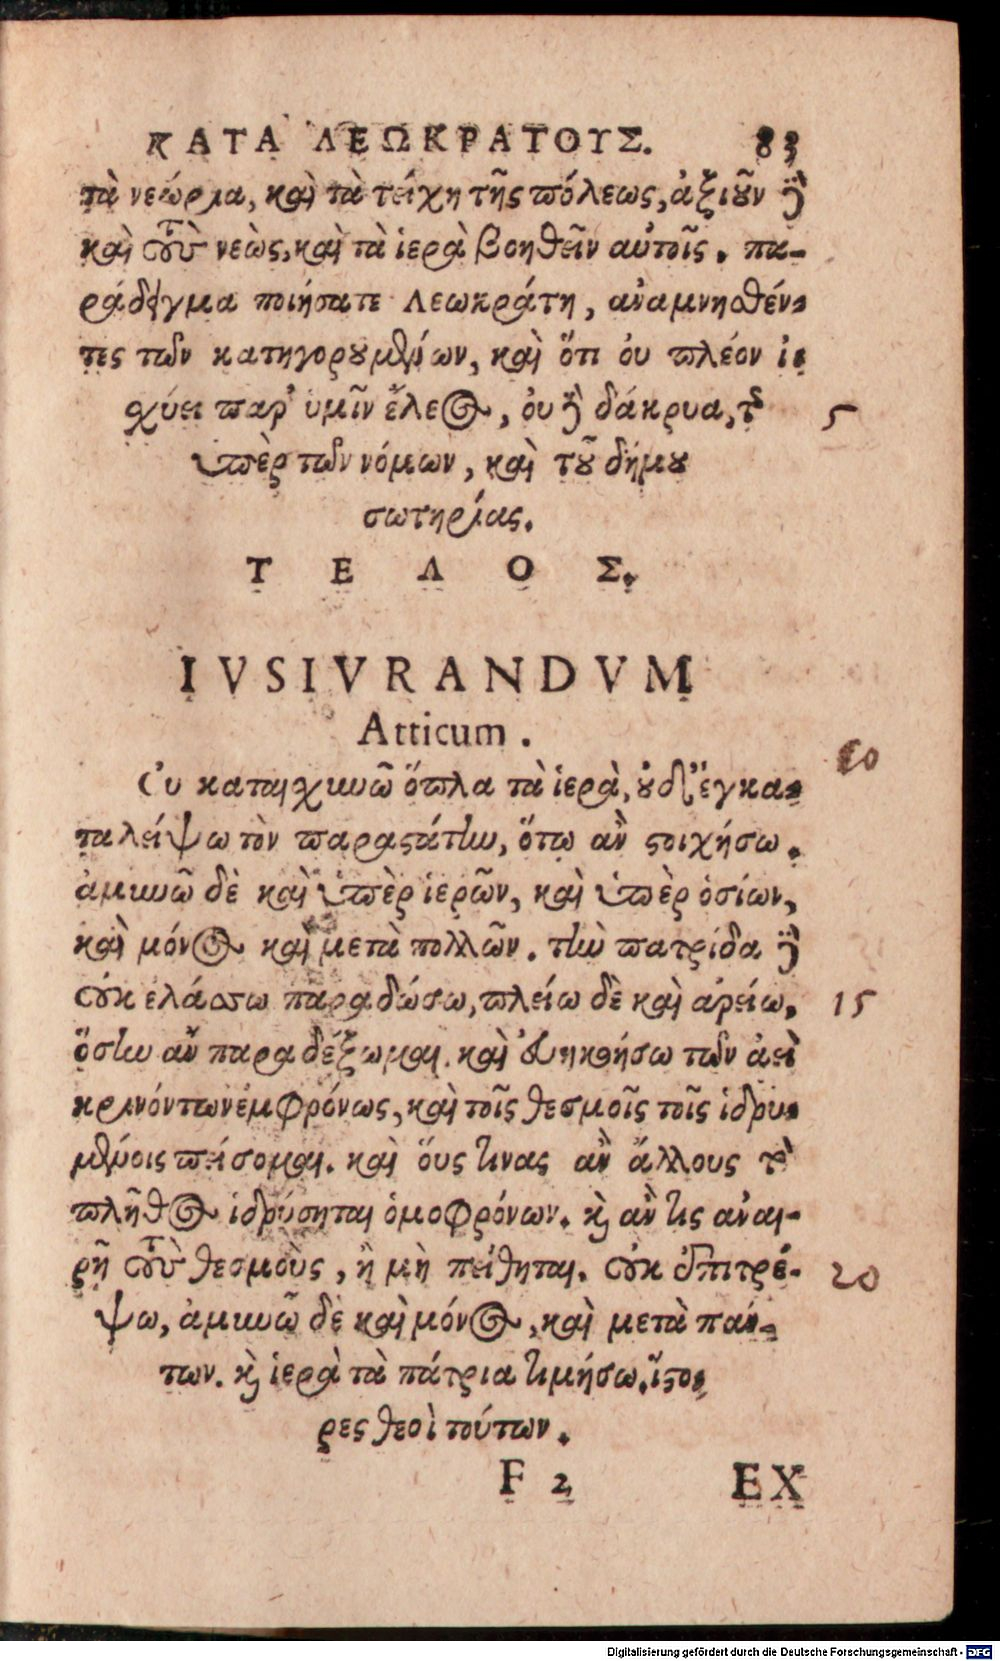 ΚΑΤΑ ΛΕΩΚΡΑΤΟΥΣ. 83
τὰ νεώρια, καὶ τὰ τείχη τῆς πόλεως, ἀξιοῦν δὲ
καὶ τοὺς νεὼς, καὶ τὰ ἱερὰ βοηθεῖν αὐτοῖς. πα-
ράδειγμα ποιήσατε Λεωκράτη, ἀναμνηθέν-
τες τῶν κατηγορουμένων, καὶ ὅτι οὐ πλέον ἰ-
χύει παρ' ὑμῖν ἔλεος, οὐδὲ δάκρυα, τῆς
ὑπὲρ τῶν νόμων, καὶ τοῦ δήμου
σωτηρίας.
5
ΤΕΛΟΣ.
IVSIVRANDVM
Atticum.
10
Οὐ καταιχυνῶ ὅπλα τὰ ἱερὰ, οὐδ' ἐγκα-
ταλείψω τὸν παραστάτην, ὅτῳ ἂν στοιχήσω.
ἀμυνῶ δὲ καὶ ὑπὲρ ἱερῶν, καὶ ὑπὲρ ὁσίων,
καὶ μόνος καὶ μετὰ πολλῶν. τὴν πατρίδα δὲ
οὐκ ἐλάσσω παραδώσω, πλείω δὲ καὶ ἀρείω,
15
ὅσην ἂν παραδέξωμαι. καὶ εὐηκοήσω τῶν ἀεὶ
κρινόντων ἐμφρόνως, καὶ τοῖς θεσμοῖς τοῖς ἱδρυ-
μένοις πείσομαι. καὶ οὕς τινας ἂν ἄλλους τὸ
πλῆθος ἱδρύσηται ὁμοφρόνων. καὶ ἂν τις ἀναι-
ρῇ τοὺς θεσμοὺς, ἢ μὴ πείθηται. οὐκ ἐπιτρέ-
20
ψω, ἀμυνῶ δὲ καὶ μόνος, καὶ μετὰ πάν-
των. καὶ ἱερὰ τὰ πάτρια τιμήσω. ἵστο-
ρες θεοὶ τούτων.
F 2 EX
Digitalisierung gefördert durch die Deutsche Forschungsgemeinschaft - DFG